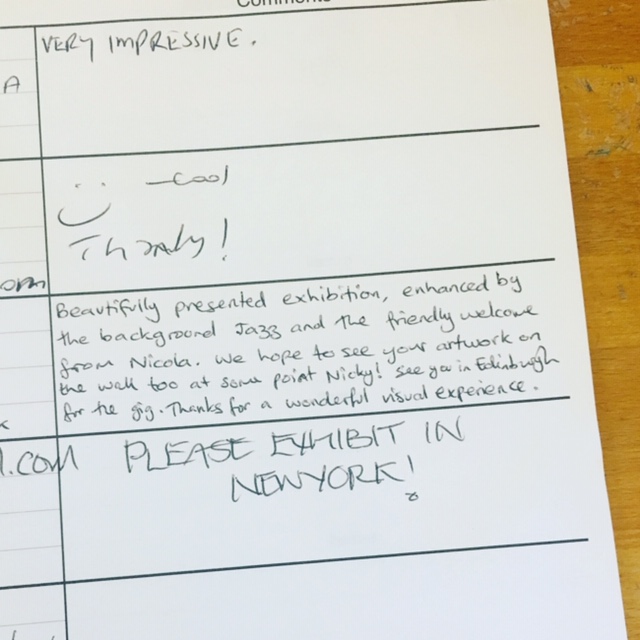 Comments
VERY IMPRESSIVE.
A
Cool
Thanks!
om
Beautifully presented exhibition, enhanced by
the background Jazz and the friendly welcome
from Nicola. We hope to see your artwork on
the wall too at some point Nicky! See you in Edinburgh
for the gig. Thanks for a wonderful visual experience.
l.com PLEASE EXHIBIT IN
NEWYORK!